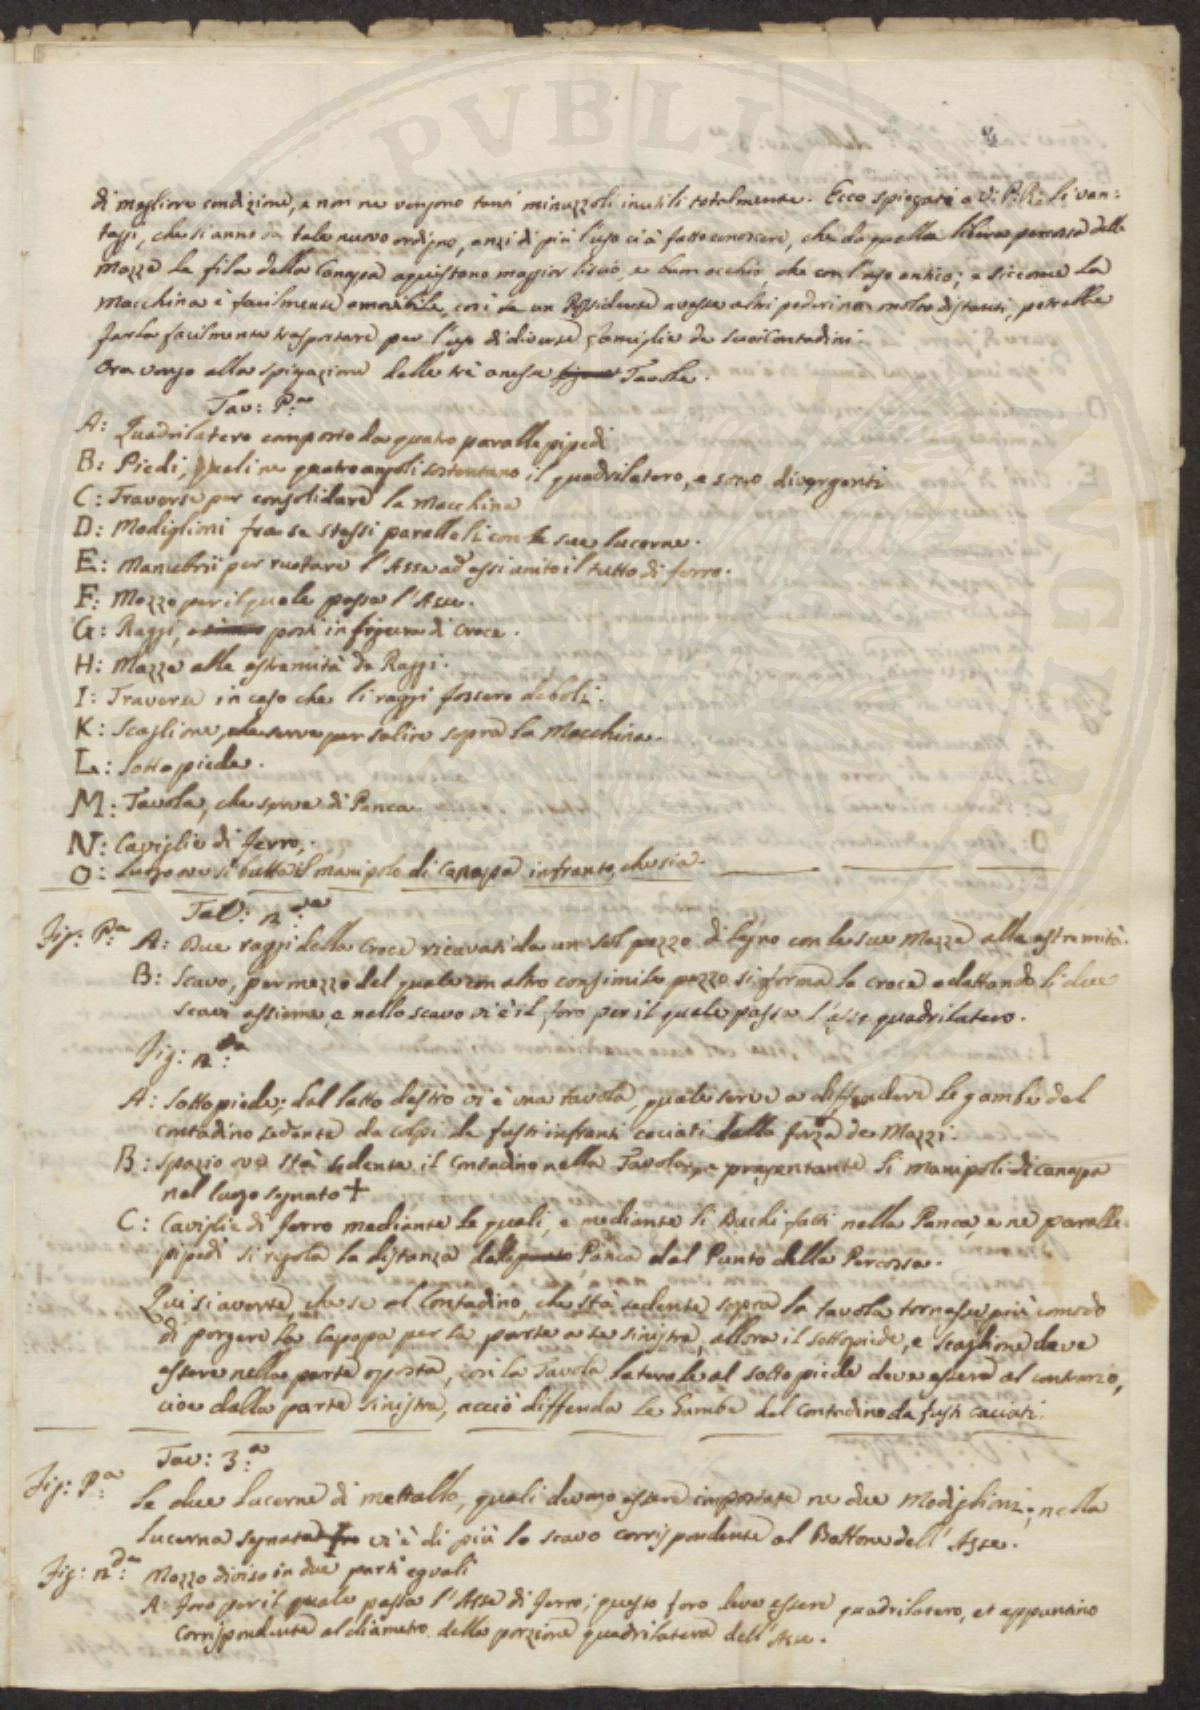 PVBLIC
di megliore condizione, e non ne vengono tanti minuzzoli inutili totalmente. Ecco spiegati a V. P. R. li van=
taggi, che si anno da tale nuovo ordigno, anzi di più l'uso ci à fatto conoscere, che da quella libera percossa delle
Mazze le fila della Canapa aquistano maggior liscio, e buon occhio, che con l'uso antico; e siccome la
Macchina è facilmente amovibile, così se un Possidente avesse altri poderi non molto distanti, potrebbe
farla facilmente trasportare per l'uso di diverse famiglie de suoi Contadini
Ora vengo alla spigazione delle trè anesse Tavole.
Tav: P.a
A: Quadrilatero composto da quatro parallepipedi
B: Piedi, quali ne quatro angoli sostentano il quadrilatero, e sono divergenti
C: Traverse per consolidare la Macchina
D: Modiglioni fra se stessi paralleli con le sue lucerne.
E: Manubrii per ruotare l'Asse ad essi unito il tutto di ferro.
F: Mozzo per il quale passa l'Asse.
G: Raggi, posti in figura di Croce.
H: Mazze alle estremità de Raggi.
I: Traverse in caso che li raggi fossero deboli.
K: Scaglione, che serve per salire sopra la Macchina.
L: Sotto piede.
M: Tavola, che serve di Panca.
N: Caviglie di ferro.
O: Luogo ove si butta il manipolo di Canapa infranto, che sia.
Tav: 2.da
Fig: P.a A: Due raggi della Croce ricavati da un sol pezzo di legno con le sue Mazze alle estremità.
B: Scavo, per mezzo del quale con altro consimile pezzo si forma la croce adattando li due
scavi assieme, e nello scavo vi è il foro per il quale passa l'asse quadrilatero.
Fig: 2.da
A: Sotto piede; dal latto destro vi è una tavola, quale serve a diffendere le gambe del
contadino sedente da colpi de fusti infranti caciati dalla forza de Mazzi.
B: Spazio ove stà sedente il Contadino nella Tavola, e presentante li manipoli di canapa
nel luogo segnato +
C: Caviglie di ferro mediante le quali, e mediante li Buchi fatti nella Panca, e ne paralle-
pipedi si regola la distanza della Panca dal Punto della Percossa.
Qui si averte, che se al Contadino, che stà sedente sopra la tavola tornasse più comodo
di porgere la Canapa per la parte a se sinistra, allora il sottopiede, e scaglione deve
essere nella parte oposta, così la Tavola laterale al sotto piede deve essere al contrario,
cioe dalla parte sinistra, acciò diffenda le Gambe del Contadino da fusti caciati.
Tav: 3.a
Fig: P.a Le due Lucerne di mettallo, quali devono essere impostate ne due Modiglioni; nella
Lucerna segnata vi è di più lo scavo corrispondente al Bottone dell'Asse.
Fig: 2.da Mozzo diviso in due parti eguali
A: Foro per il quale passa l'Asse di ferro; questo foro deve essere quadrilatero, et appuntino
corrispondente al diametro della porzione quadrilatera dell'Asse.